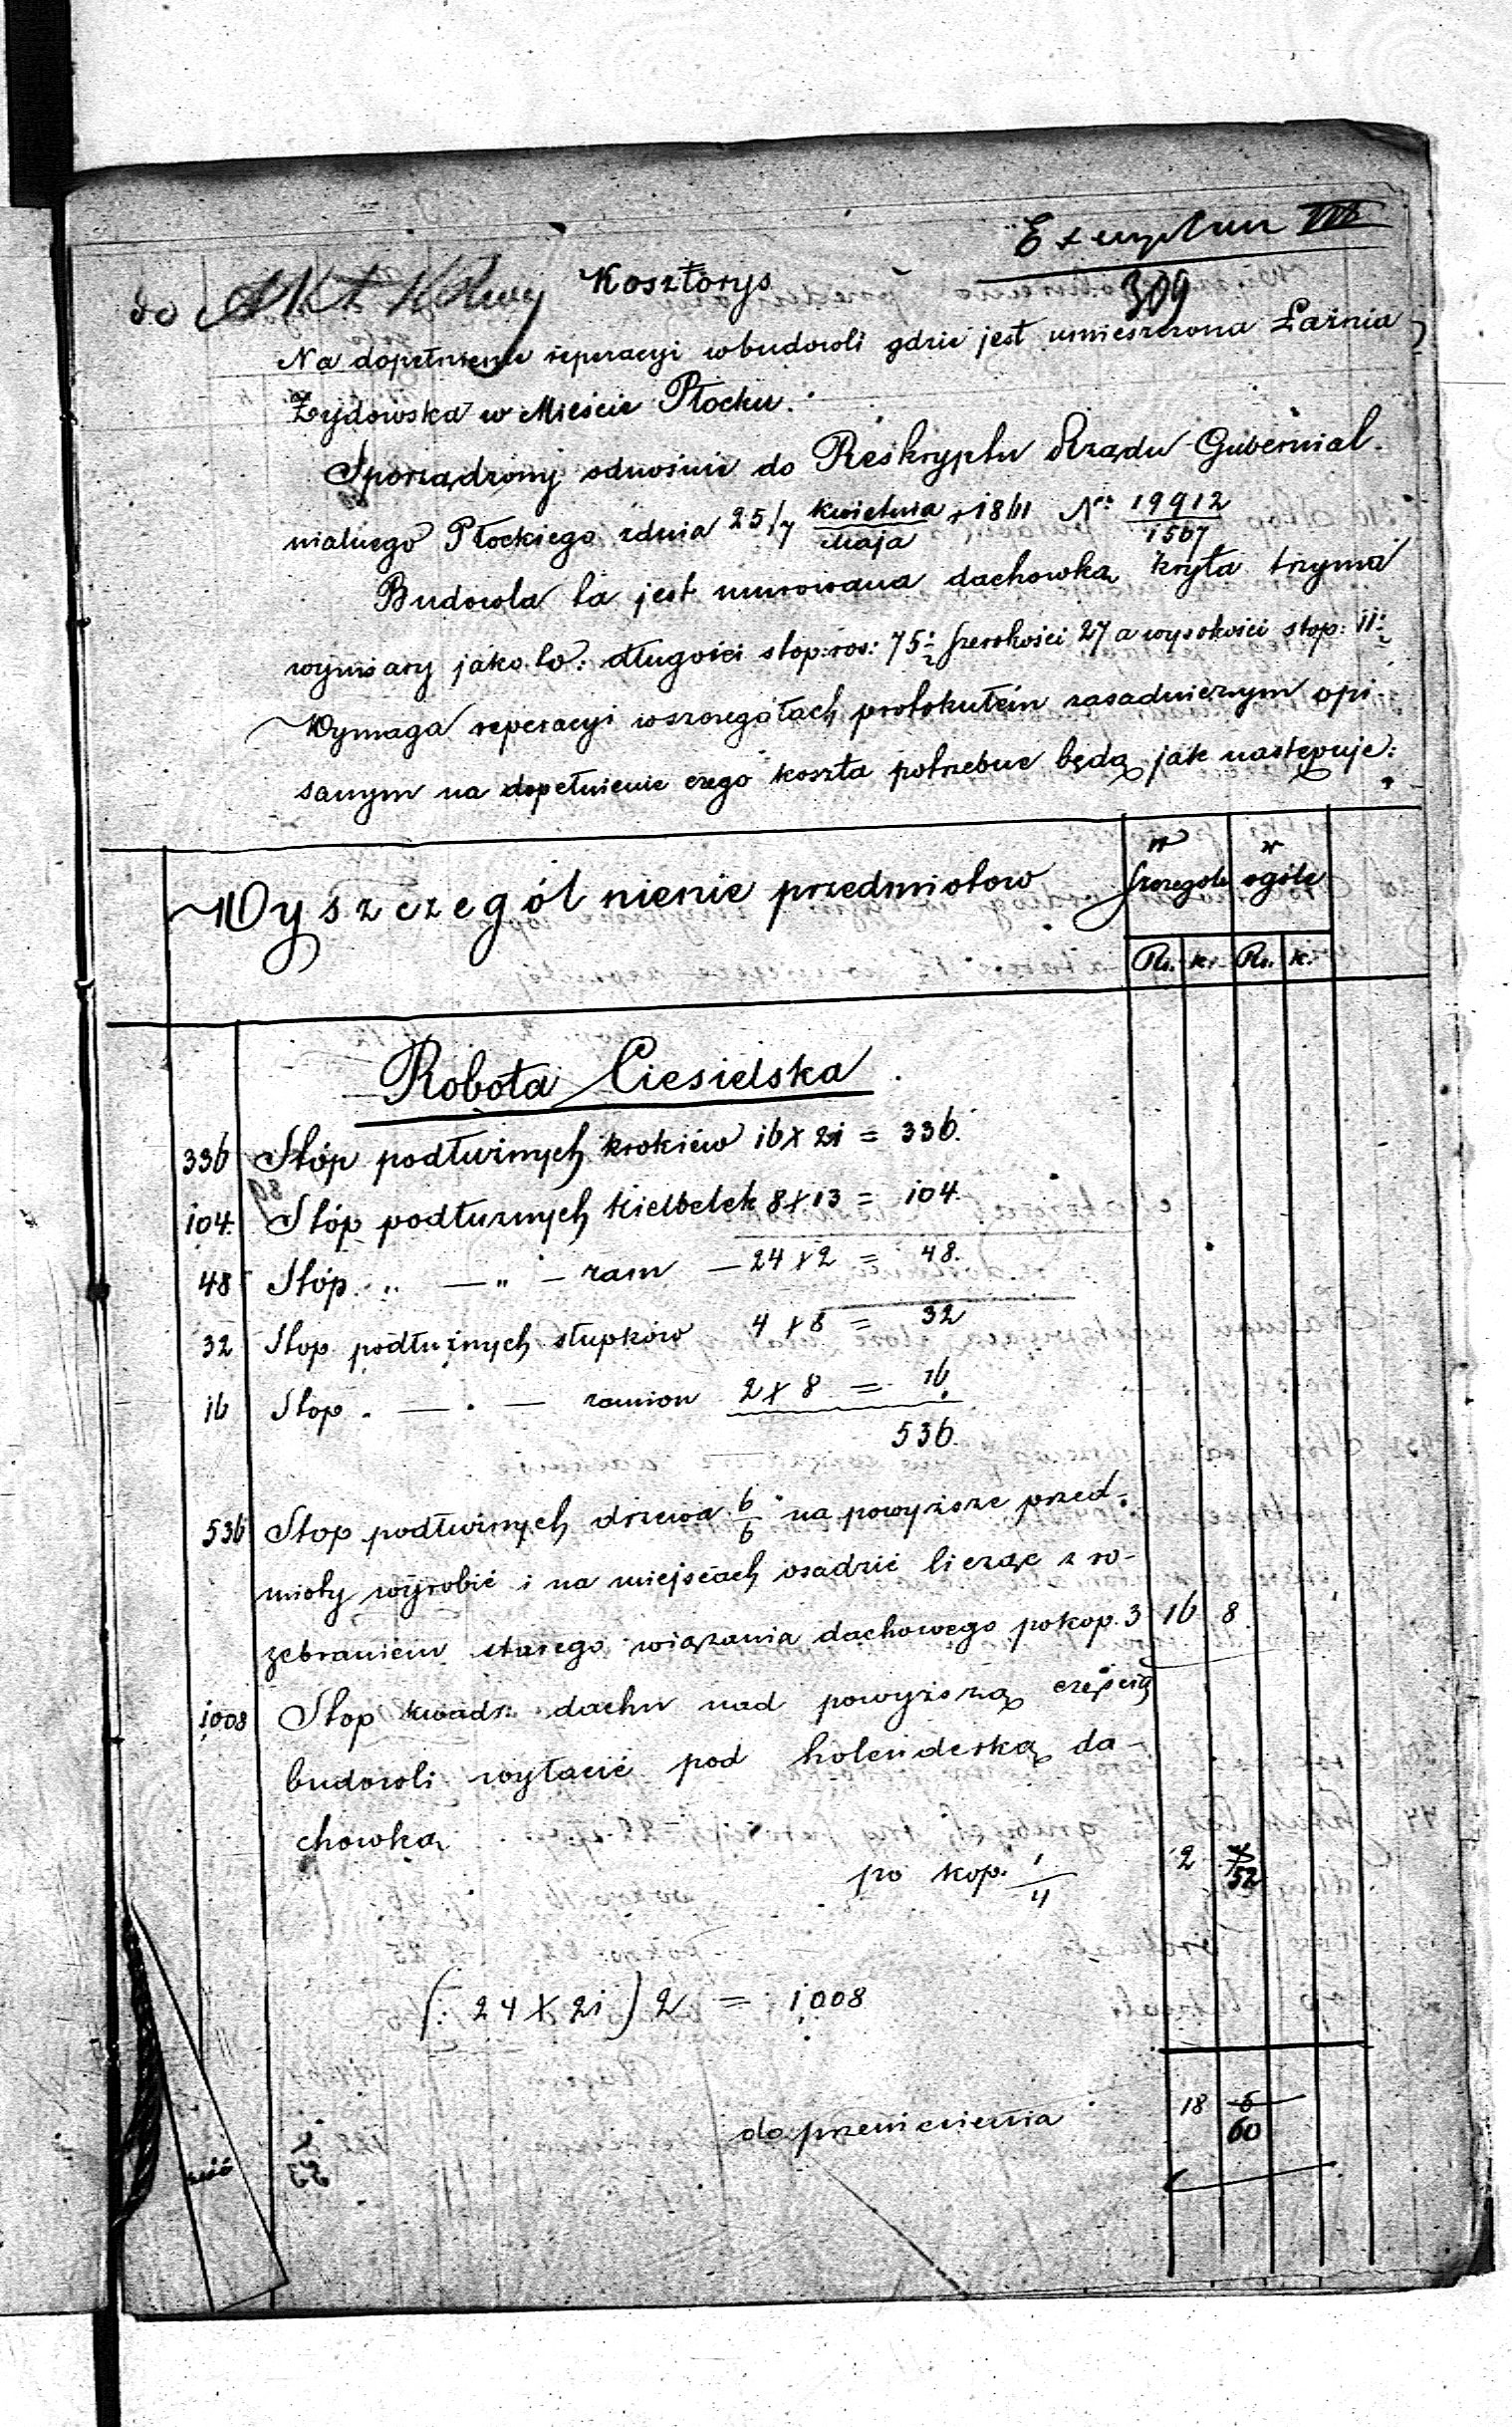 Exemplum III
309
do Akt
Kosztorys
Na dopełnienie reperacyi w budowli gdzie jest umieszczona Łaźnia
Żydowska w Mieście Płocku.
Sporządzony odnośnie do Reskryptu Rządu Gubernial-
nialnego Płockiego z dnia 25/7 kwietnia/maja 1861 Nro 19912/1567
Budowla ta jest murowana dachowką kryta trzyma
wymiary jako to: długości stop: ros: 75 1/2 szerokości 27 a wysokości stop: 11 1/2
Wymaga reperacyi w szczegółach protokułem zasadniczym opi-
sanym na dopełnienie czego koszta potrzebne będą jak następuje:
Wyszczególnienie przedmiotow
w szczególe
w ogóle
Rs. k. Rs. k.
Robota Ciesielska
336 Stóp podłużnych krokiew 16 x 21 = 336.
104. Stóp podłużnych Kielbelek 8 x 13 = 104.
48 Stóp „ — „ — ram — 24 x 2 = 48.
32 Stop podłużnych słupków 4 x 8 = 32
16 Stop . — . — ramion 2 x 8 = 16.
536.
536 Stop podłużnych drzewa 6/6 " na powyższe przed-
mioty wyrobić i na miejscach osadzić licząc z ro-
zebraniem starego wiązania dachowego po kop. 3 16 8
1008 Stop kwadr. dachu nad powyższą częścią
budowli wyłacić pod holenderską da-
chowką
po kop. 1/4 2 52
(: 24 x 21) 2 = 1008
do przeniesienia 18 6
60